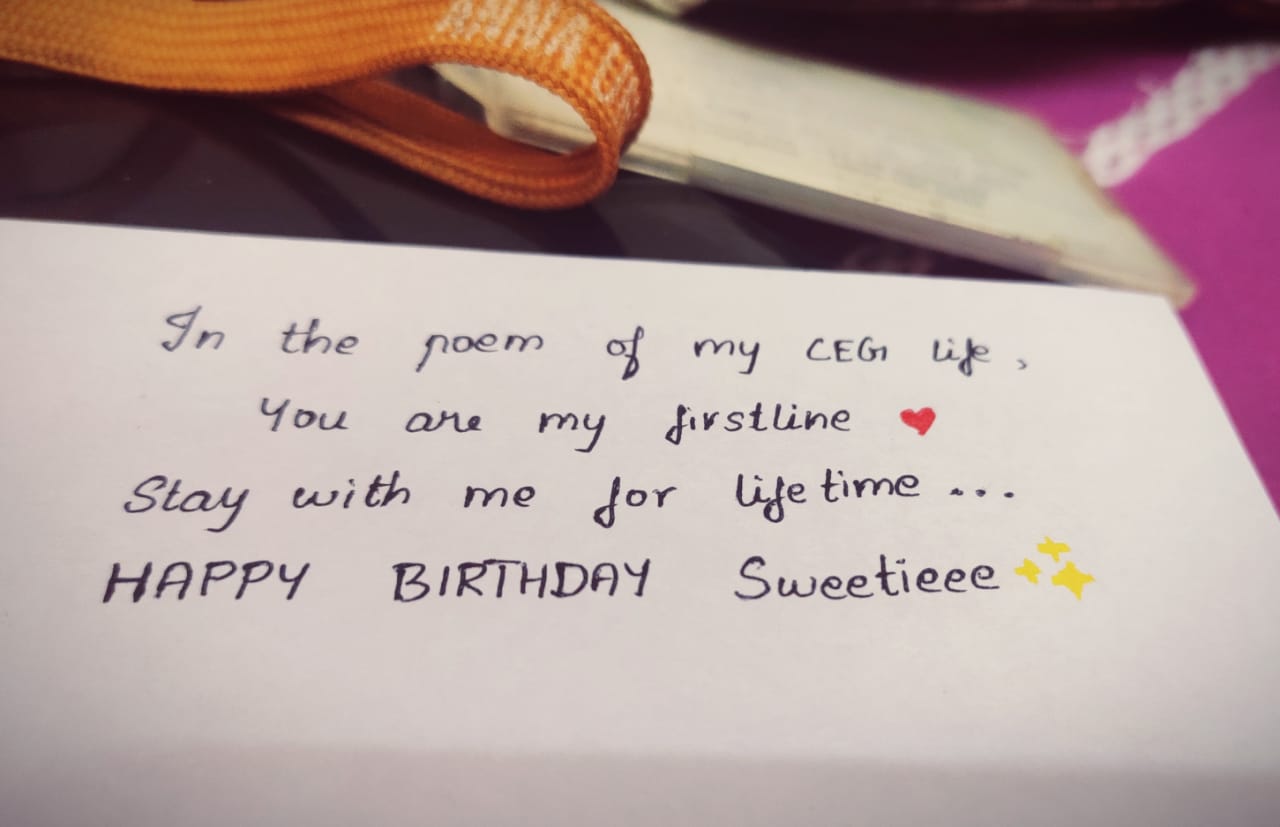 ANNA UN
In the poem of my CEG life,
You are my firstline ❤
Stay with me for life time ...
HAPPY BIRTHDAY Sweetieee ✨